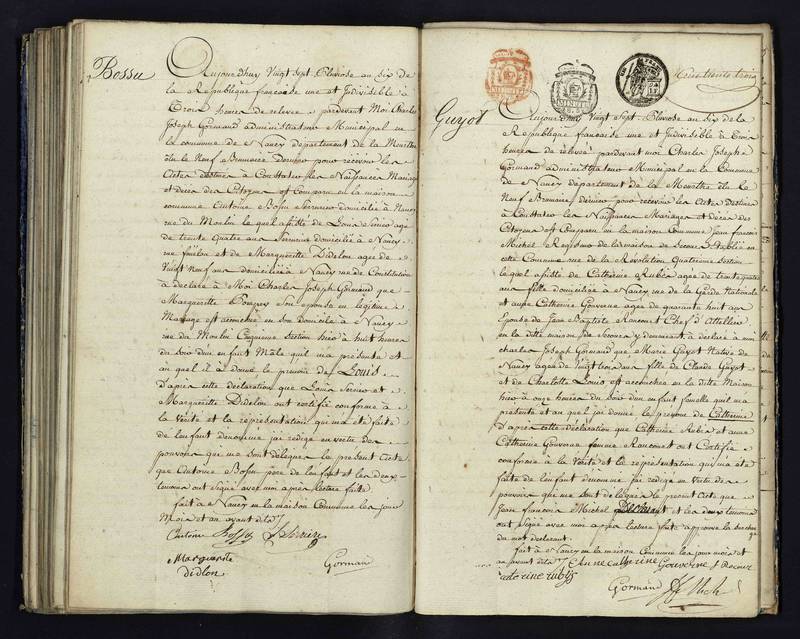 Bossu
Aujourdhuy Vingt Sept Pluviose an Six de
la Republique francaise une et Indivisible à
Trois heures de relevée pardevant Moi Charles
Joseph Gormand administrateur Municipal en
la commune de Nancy département de la Meurthe
élu le Neuf Brumaire Dernier pour recevoir les
Actes destinés à Constater les Naissances Mariages
et décès des Citoyens est Comparu en la maison
commune Antoine Bossu Serrurier domicilié à Nancy
rue du Moulin le quel assisté de Louis agé
de trente quatre ans Serrurier domicilié à Nancy
rue et de Margueritte Didelon agée de
Vingt Neuf ans domiciliée à Nancy rue de Constitution
a déclaré à Moi Charles Joseph Gormand que
Margueritte Son epouse en legitime
Mariage est accouchée en Son domicile à Nancy
rue du Moulin Cinquieme Section hier à huit heures
du Soir dun enfant Male quil ma présenté et
au quel il à donné le prenom de Louis.
D'après cette déclaration que Louis et
Margueritte Didelon ont certifié conforme à
la Verité et la représentation qui ma été faite
de lenfant denommé jai redigé en vertu des
pouvoirs qui me Sont délégués le present acte
que Antoine Bossu père de lenfant et les deux
temoins ont Signé avec moi après lecture faite
fait à Nancy en la maison Commune les jour
Mois et an avant dits
Antoine Bossu
Marguerite
didlon
Gormand
Cent trente trois
Guyot
Aujourdhuy Vingt Sept Pluviose an Six de la
Republique francaise une et Indivisible à Trois
heures de relevée pardevant moi Charles Joseph
Gormand administrateur Municipal en la Commune
de Nancy département de la Meurthe élu le
Neuf Brumaire dernier pour recevoir les Actes destinés
à Constater les Naissances Mariages et décès des
Citoyens est Comparu en la maison Commune Jean francois
Michel Regisseur de la maison de Secours Etablie en
cette Commune rue de la Révolution Quatrieme Section
lequel assisté de Catherine Rubis agée de trente quatre
ans fille domiciliée à Nancy rue de la Garde Nationale
et anne Catherine Gouverne agée de quarante huit ans
Epouse de Jean Baptiste Rancourt Chef d'Attellier
en la ditte maison de Secours y demeurant à déclaré à moi
charles Joseph Gormand que Marie Guyot Native de
Nancy agée de Vingt ans fille de Claude Guyot
et de Charlotte Louis est accouchée en la ditte Maison
hier à onze heures du Soir dun enfant femelle quil ma
présenté et au quel jai donné le prenom de Catherine
D'après cette déclaration que Catherine Rubis et anne
Catherine Gouverne femme Rancourt ont Certifié
conforme à la Verité et la représentation qui ma été
faite de lenfant denommé jai redigé en Vertu des
pouvoirs qui me Sont délégués le present acte que
Jean francois Michel Declarant et les deux temoins
ont Signé avec moi après lecture faite approuvé la Surcharge
du mot declarant.
fait à Nancy en la maison Commune les jour mois et
an avant dits Anne catherine Gouverne f
caterine rubis
Gormand